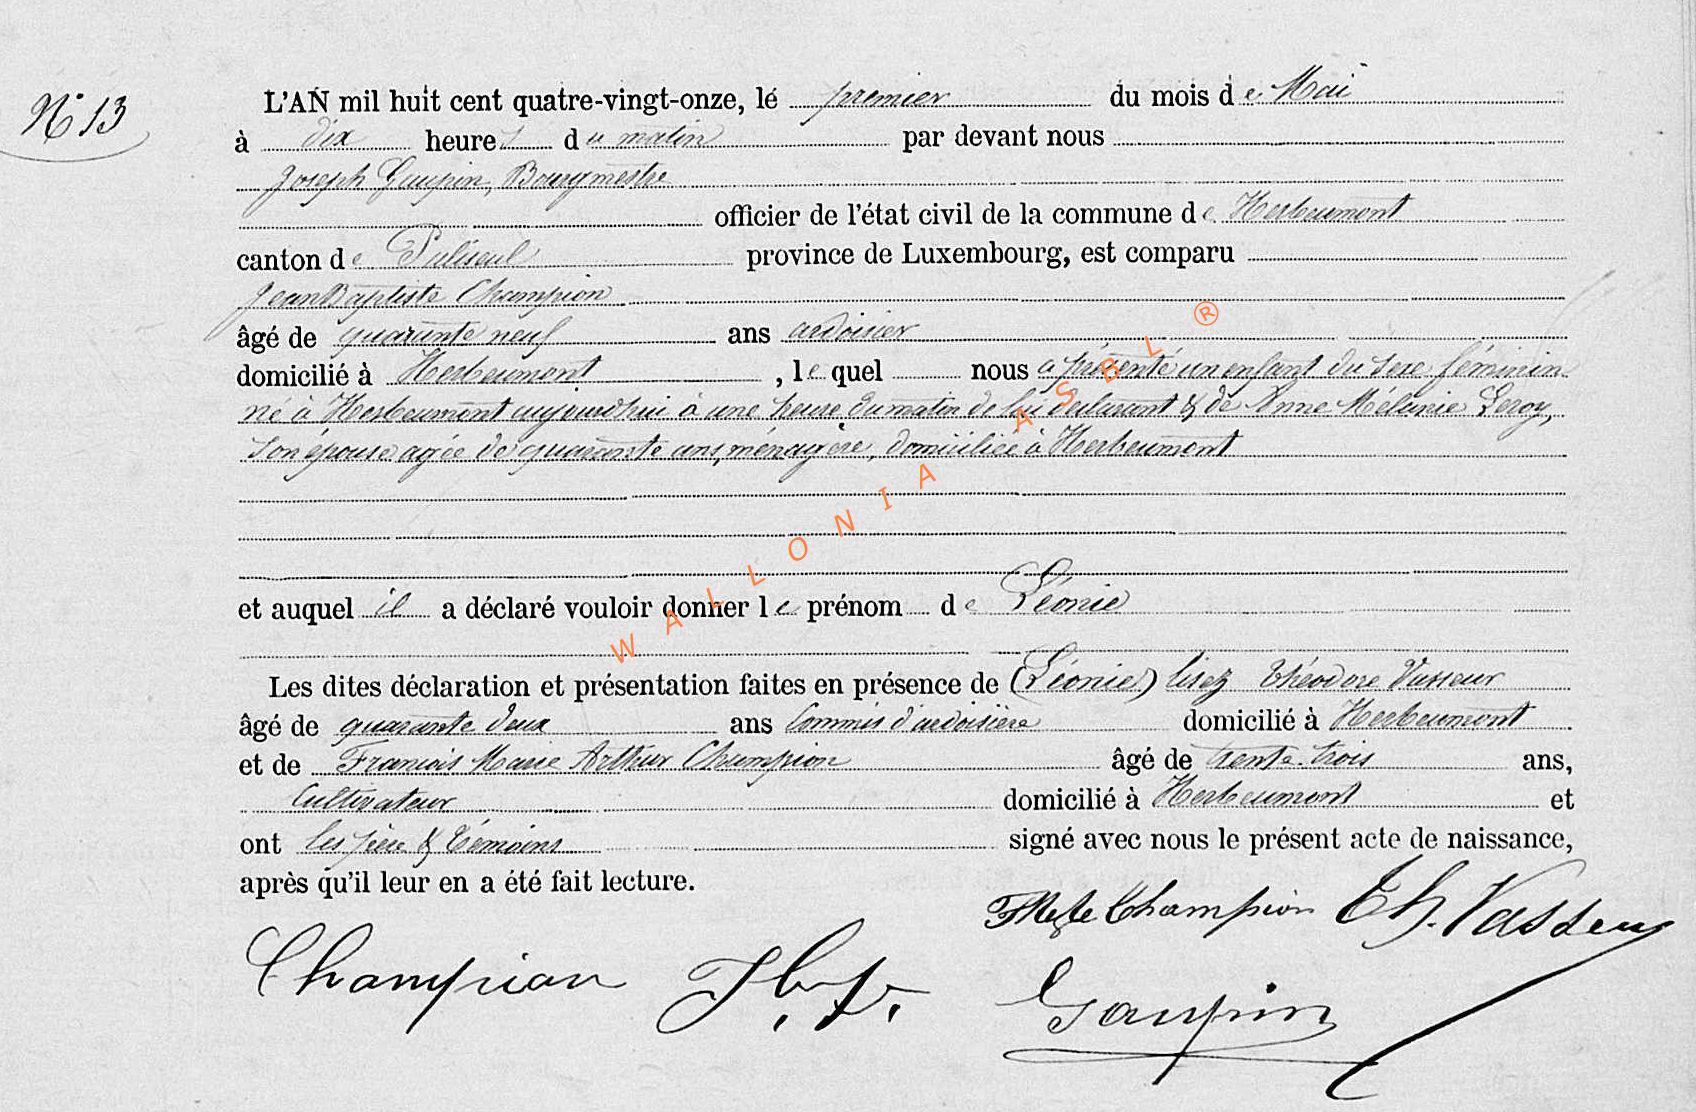 N° 13
L'AN mil huit cent quatre-vingt-onze, lé premier du mois de Mai
à dix heures du matin par devant nous
Joseph Gaupin, Bourgmestre
officier de l'état civil de la commune de Herbeumont
canton de Paliseul province de Luxembourg, est comparu
Jean Baptiste Champion
âgé de quarante neuf ans ardoisier
domicilié à Herbeumont, lequel nous a présenté un enfant du sexe féminin
né à Herbeumont aujourdhui à une heure du matin de lui déclarant & de Anne Mélanie Leroy,
son épouse agée de quarante ans, ménagère, domiciliée à Herbeumont
et auquel il a déclaré vouloir donner le prénom de Léonie
Les dites déclaration et présentation faites en présence de (Léonie) lisez Théodore Vasseur
âgé de quarante deux ans Commis d'ardoisière domicilié à Herbeumont
et de Francois Marie Arthur Champion âgé de trente-trois ans,
Cultivateur domicilié à Herbeumont et
ont les père & témoins signé avec nous le présent acte de naissance,
après qu'il leur en a été fait lecture.
Champion Th. Vasseur
Champion J.B.
Gaupin
WALLONIA ASBL ®